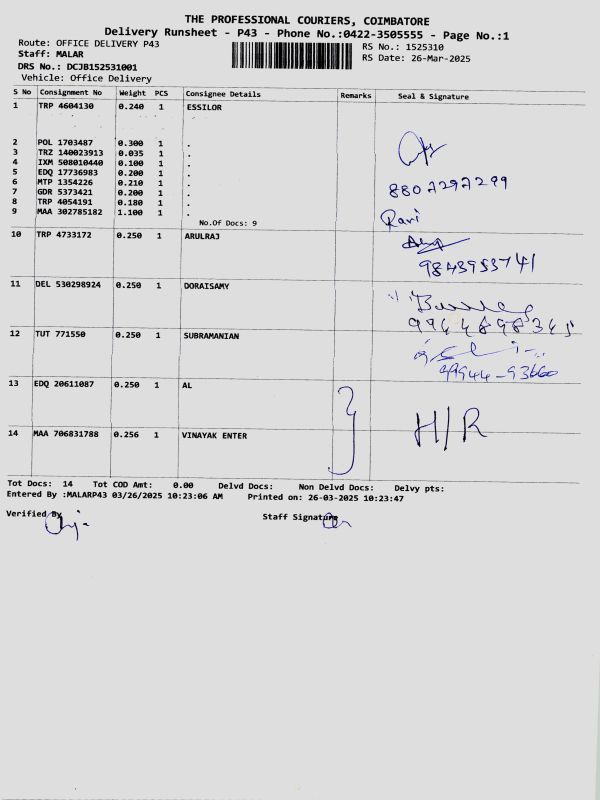 THE PROFESSIONAL COURIERS, COIMBATORE
Delivery Runsheet - P43 - Phone No.:0422-3505555 - Page No.:1
Route: OFFICE DELIVERY P43
Staff: MALAR
DRS No.: DCJB152531001
Vehicle: Office Delivery
RS No.: 1525310
RS Date: 26-Mar-2025
S No Consignment No Weight PCS Consignee Details Remarks Seal & Signature
1 TRP 4604130 0.240 1 ESSILOR
2 POL 1703487 0.300 1 .
3 TRZ 140023913 0.035 1 .
4 IXM 508010440 0.100 1 .
5 EDQ 17736983 0.200 1 .
6 MTP 1354226 0.210 1 .
7 GDR 5373421 0.200 1 .
8 TRP 4054191 0.180 1 .
9 MAA 302785182 1.100 1 .
8807297299
No.Of Docs: 9
Ravi
10 TRP 4733172 0.250 1 ARULRAJ
9843953741
11 DEL 530298924 0.250 1 DORAISAMY
9944898345
12 TUT 771550 0.250 1 SUBRAMANIAN
99944-93660
13 EDQ 20611087 0.250 1 AL
H/R
14 MAA 706831788 0.256 1 VINAYAK ENTER
Tot Docs: 14 Tot COD Amt: 0.00 Delvd Docs: Non Delvd Docs: Delvy pts:
Entered By :MALARP43 03/26/2025 10:23:06 AM Printed on: 26-03-2025 10:23:47
Verified By
Staff Signature